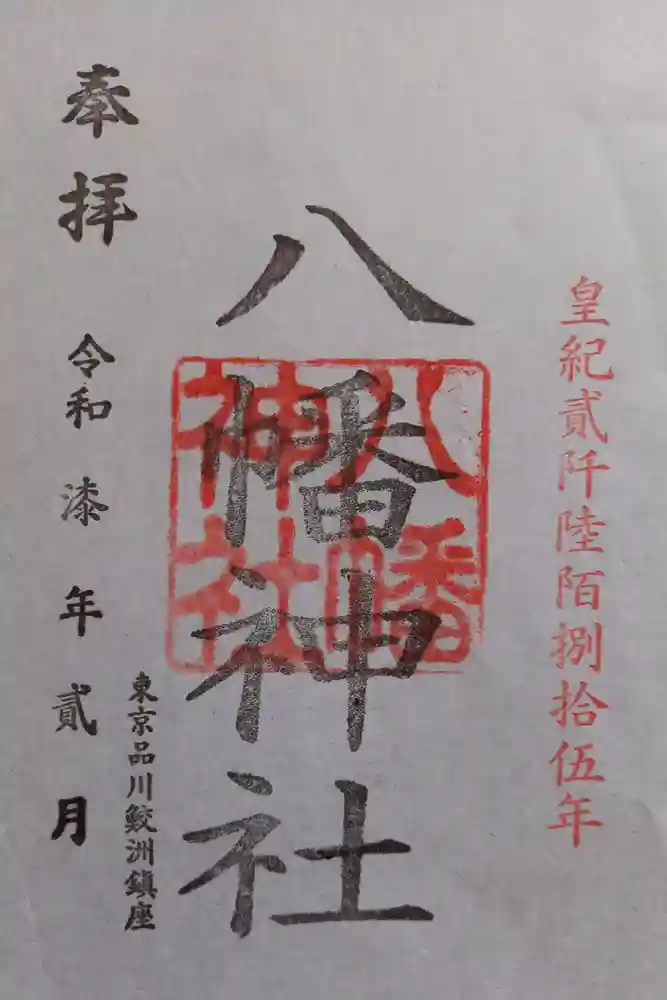 皇紀貳阡陸陌捌拾伍年
八幡神社
八幡
神社
奉拝
令和漆年貳月
東京品川鮫洲鎮座